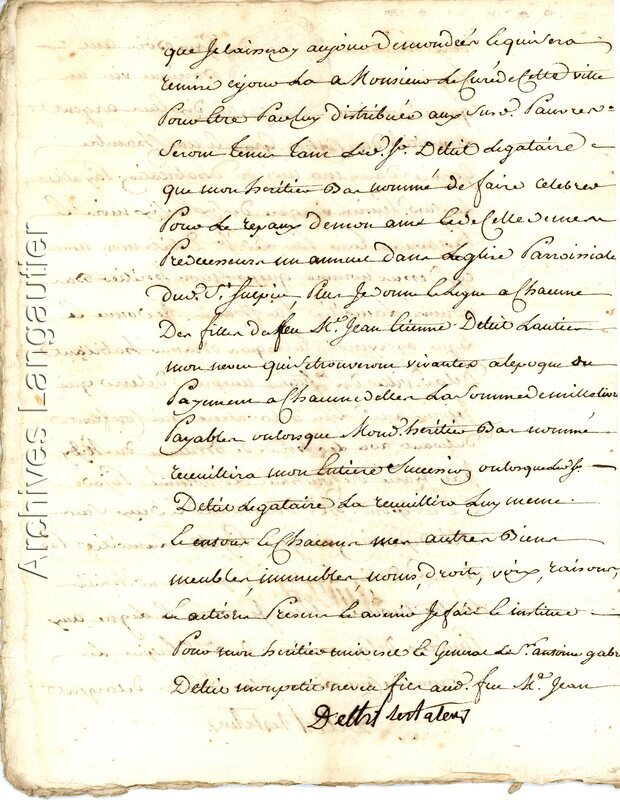 que je laisseray au jour de mon deces lequi sera
remise ce jour la a Monsieur le Curé de Cette ville
Pour Etre Par luy distribuée aux susd. Pauvres
Seront tenus tant led. Sr. Deltil legataire
que mon heritier Bas nommé de faire celebrer
Pour le repaux de mon ame et de Celle de mes
Predecesseurs un annuel dans leglise Parroissiale
dud. St. Suspice Plus je donne et legue a Chacune
Des filles de feu Mr. Jean Etienne Deltil
mon neveu qui se trouveront vivantes a lepoque du
Payement a Chacune delles la somme de mille livres
Payables ou lorsque Mond. heritier Bas nommé
recueillira mon Entiere Succession ou lorsque led. Sr.
Deltil legataire La recueillira Luy meme
Et en tous Et Chacuns mes autres Biens
meubles, immeubles noms, droits, voix, raisons,
et actions Presens et avenir Je fais et institue
Pour mon heritier universel et General le Sr. antoine gabr
Deltil mon petit neveu fils aud. feu Mr. Jean
Deltil testateur
Archives Langautier